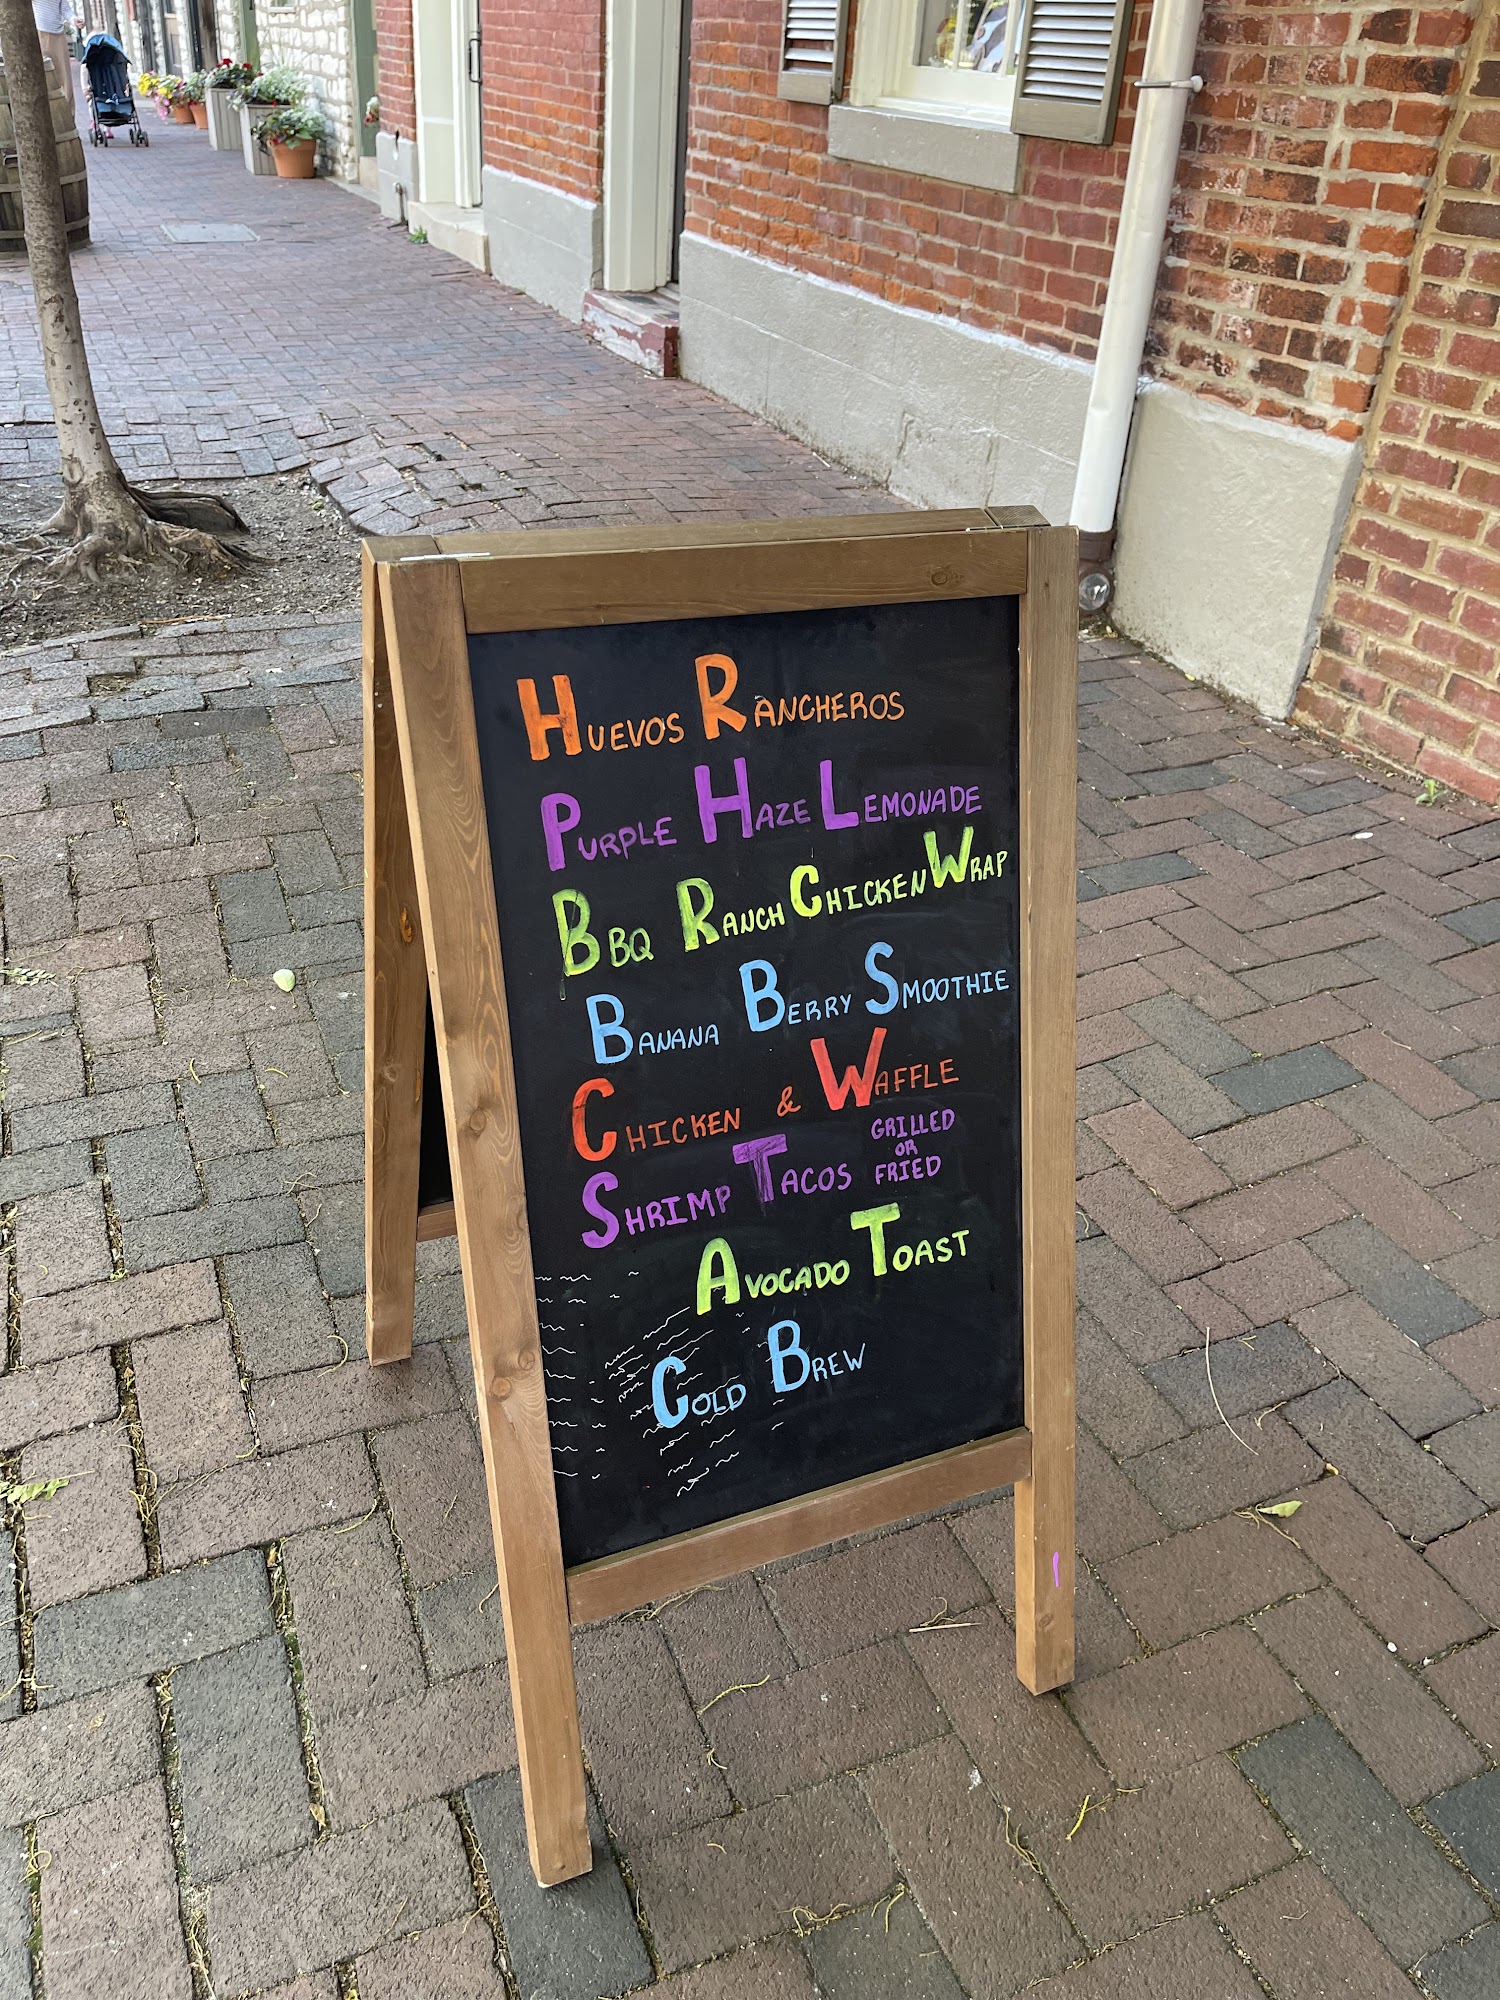 HUEVOS RANCHEROS
PURPLE HAZE LEMONADE
BBQ RANCH CHICKEN WRAP
BANANA BERRY SMOOTHIE
CHICKEN & WAFFLE
SHRIMP TACOS GRILLED OR FRIED
AVOCADO TOAST
COLD BREW